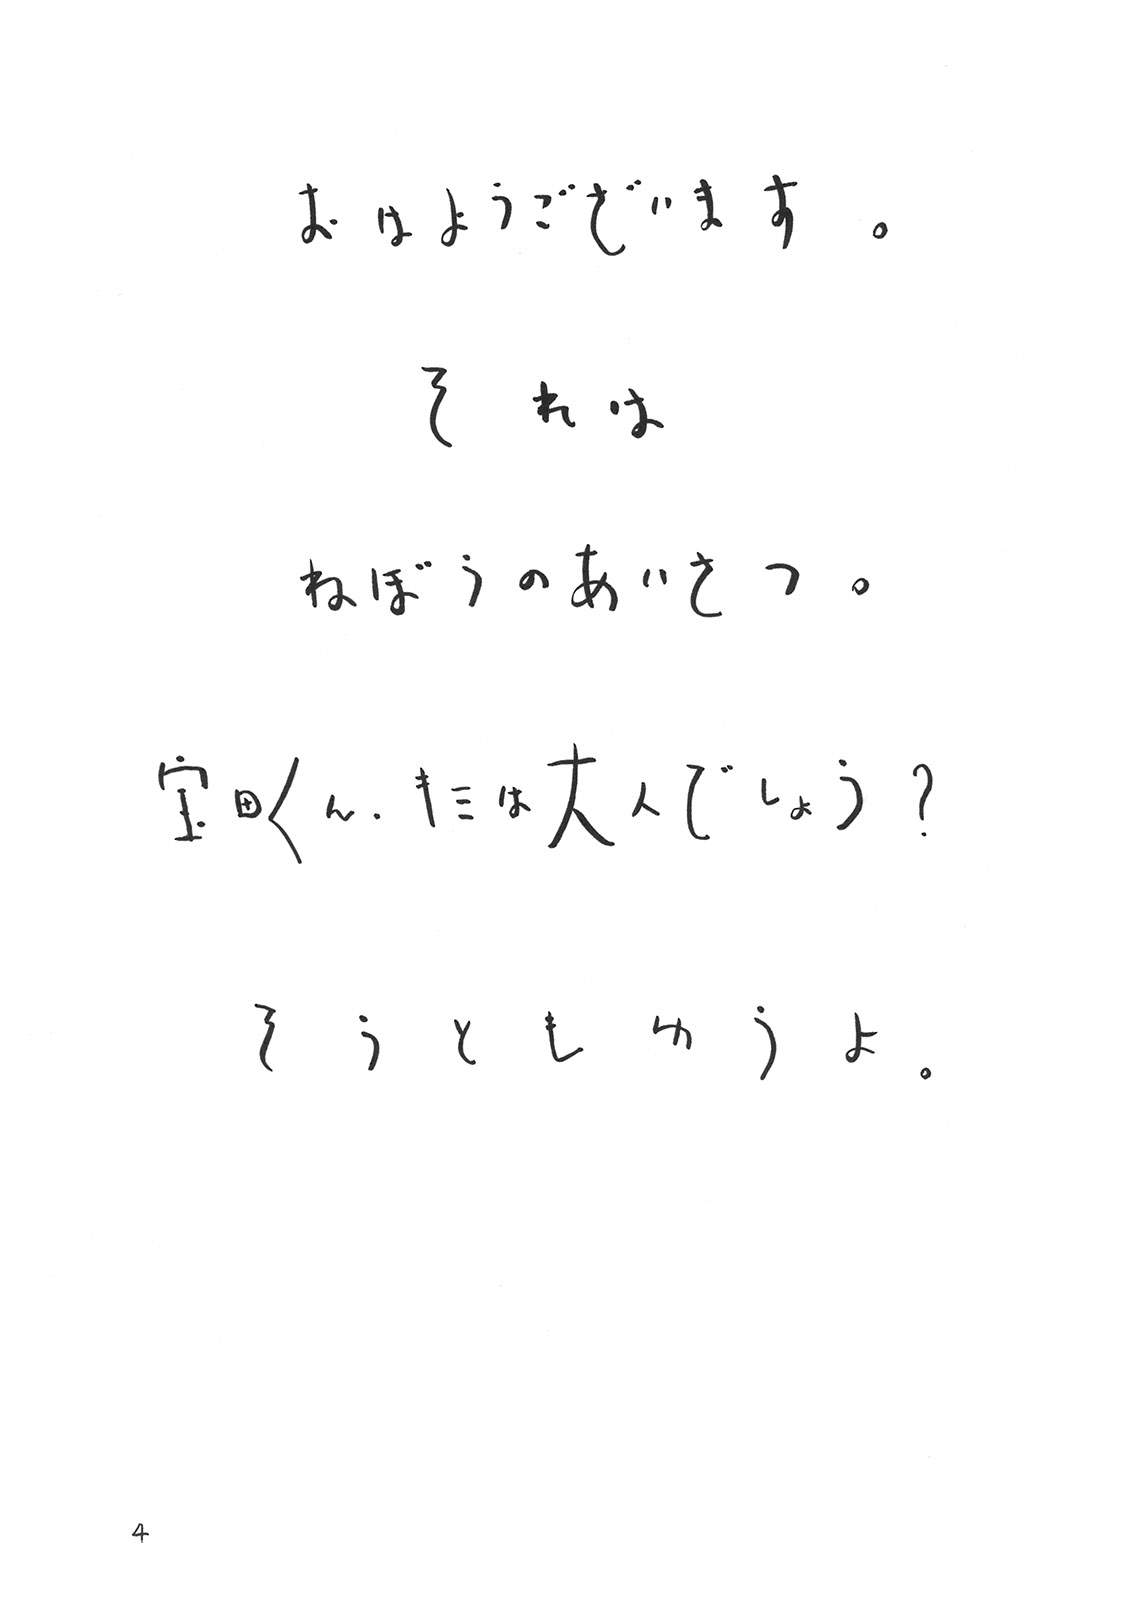 おはようございます。
それは
ねぼうのあいさつ。
宝田くん.キミは大人でしょう?
そうともゆうよ。
4